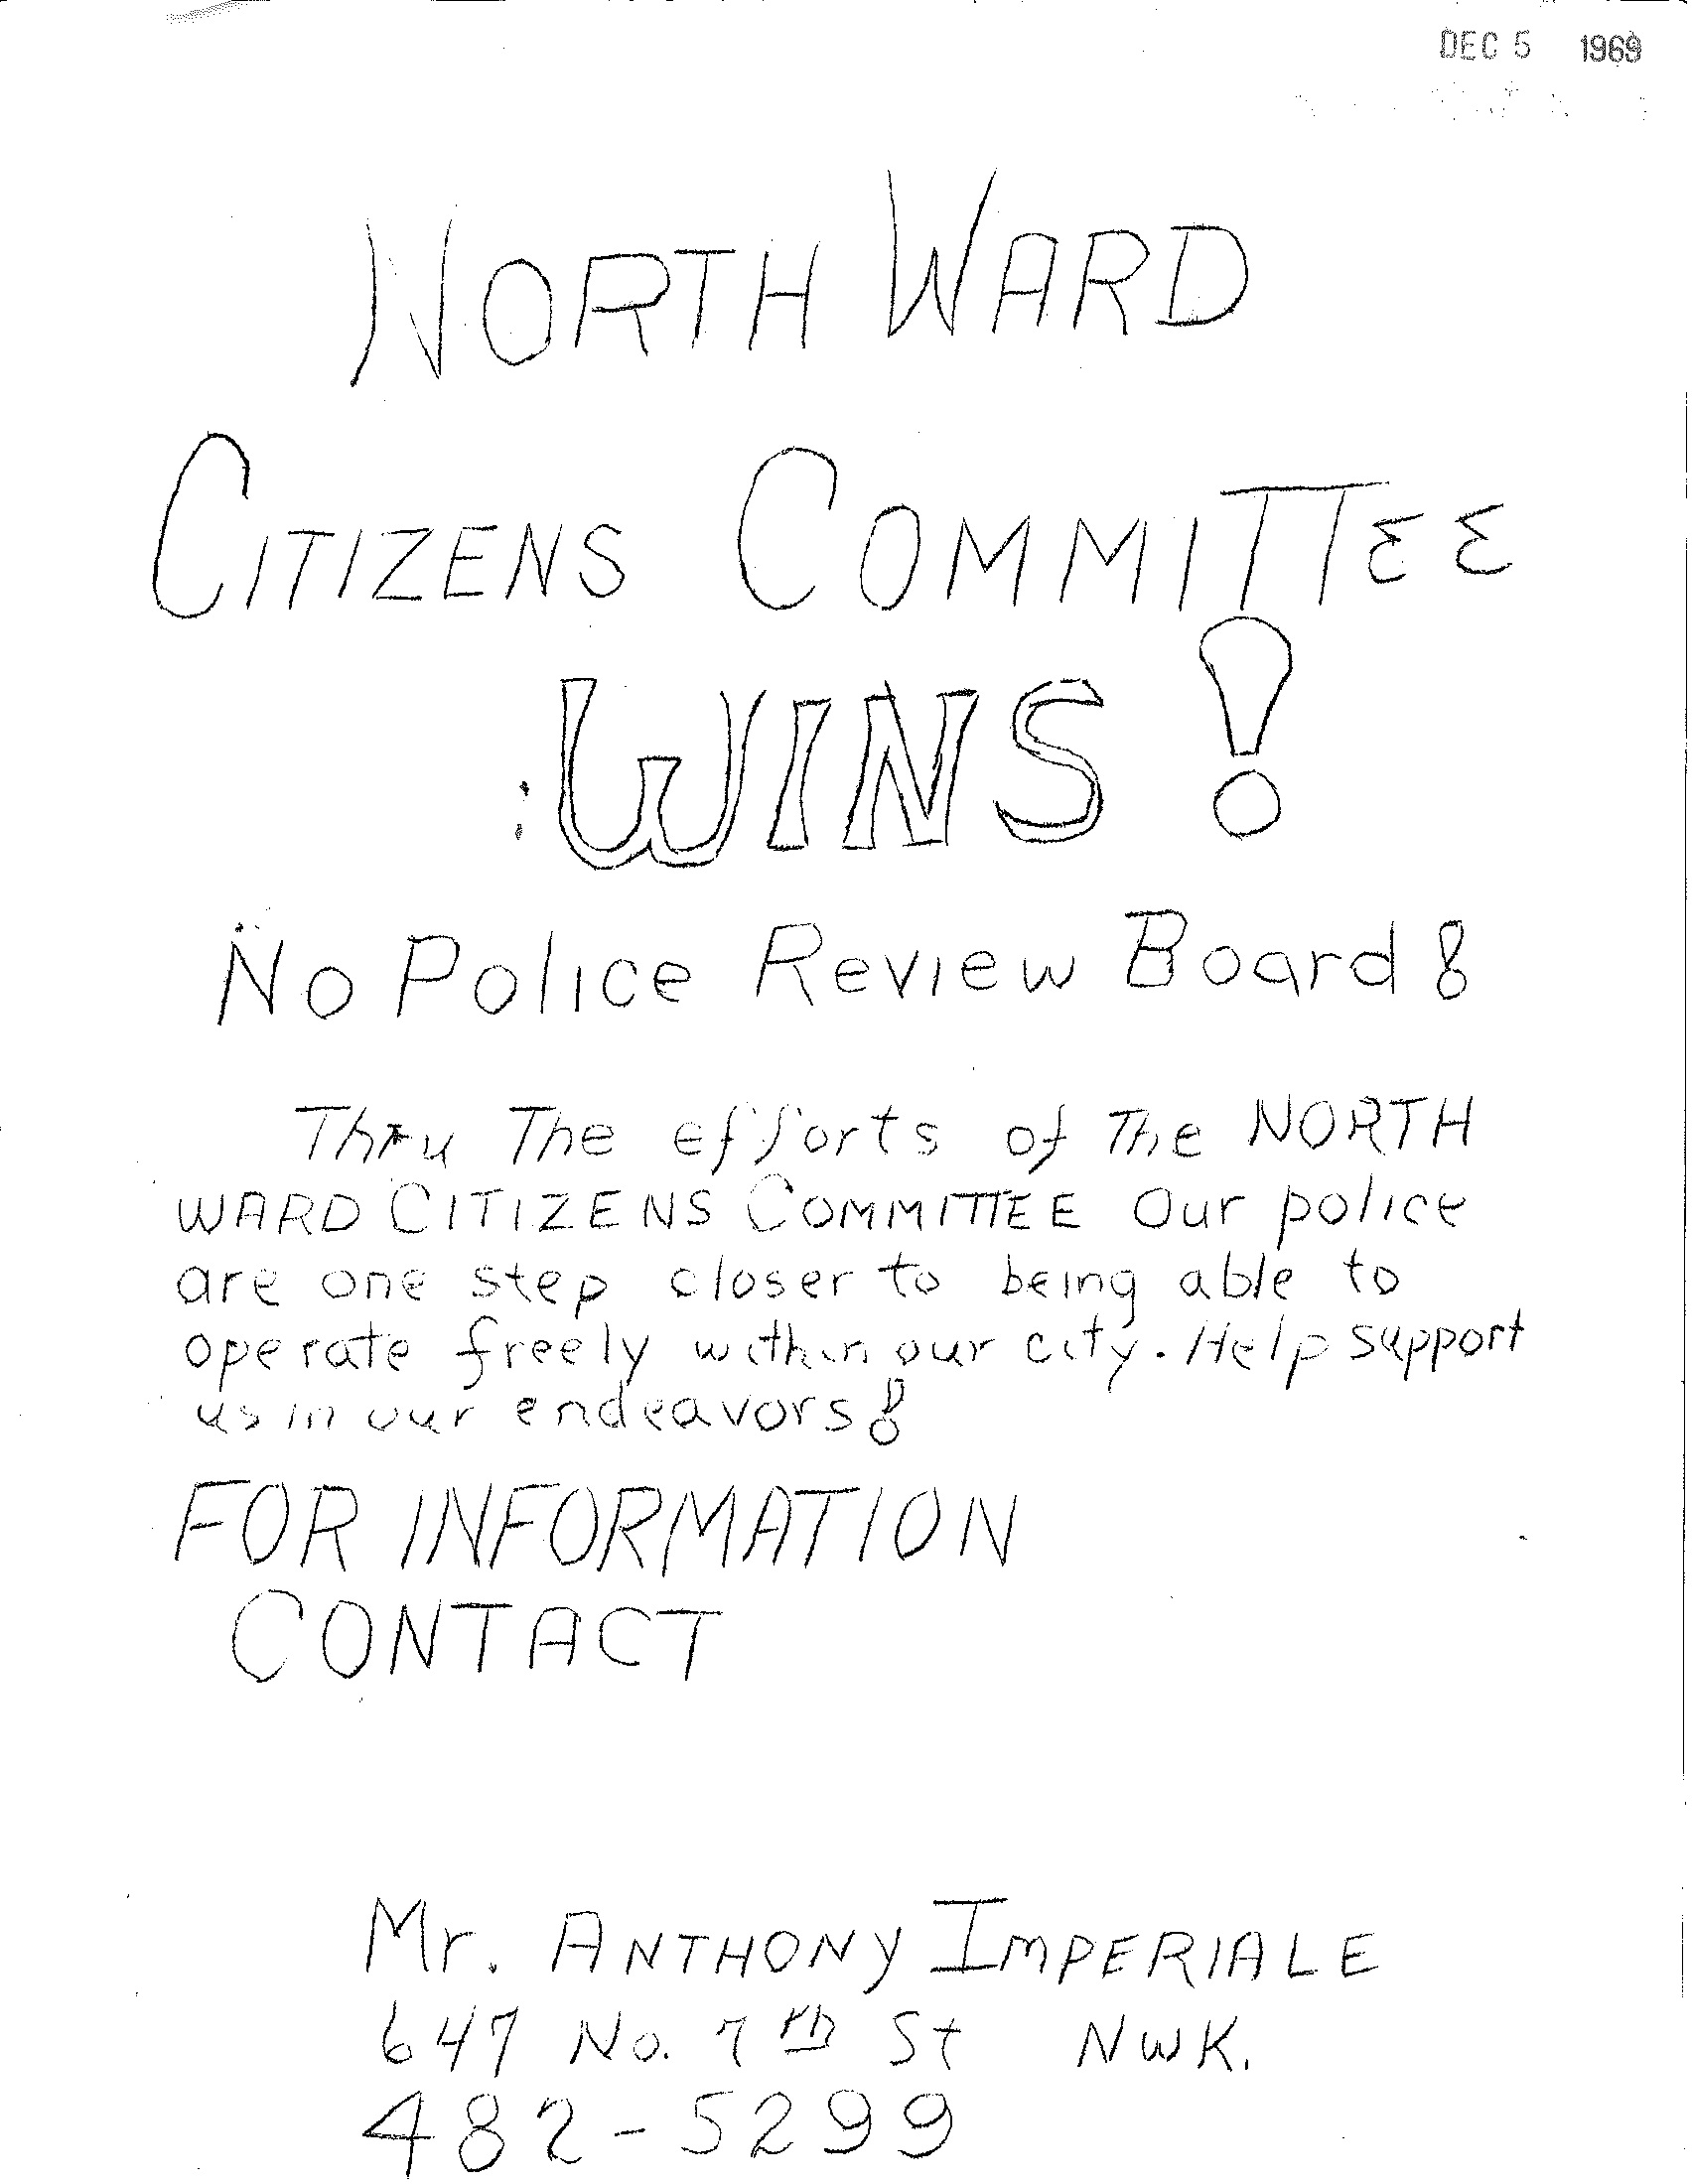 DEC 5 1969
NORTH WARD
CITIZENS COMMITTEE
WINS!
No Police Review Board!
Thru The efforts of The NORTH
WARD CITIZENS COMMITTEE Our police
are one step closer to being able to
operate freely within our city. Help support
us in our endeavors!
FOR INFORMATION
CONTACT
Mr. ANTHONY IMPERIALE
647 No. 7th St NWK.
482-5299